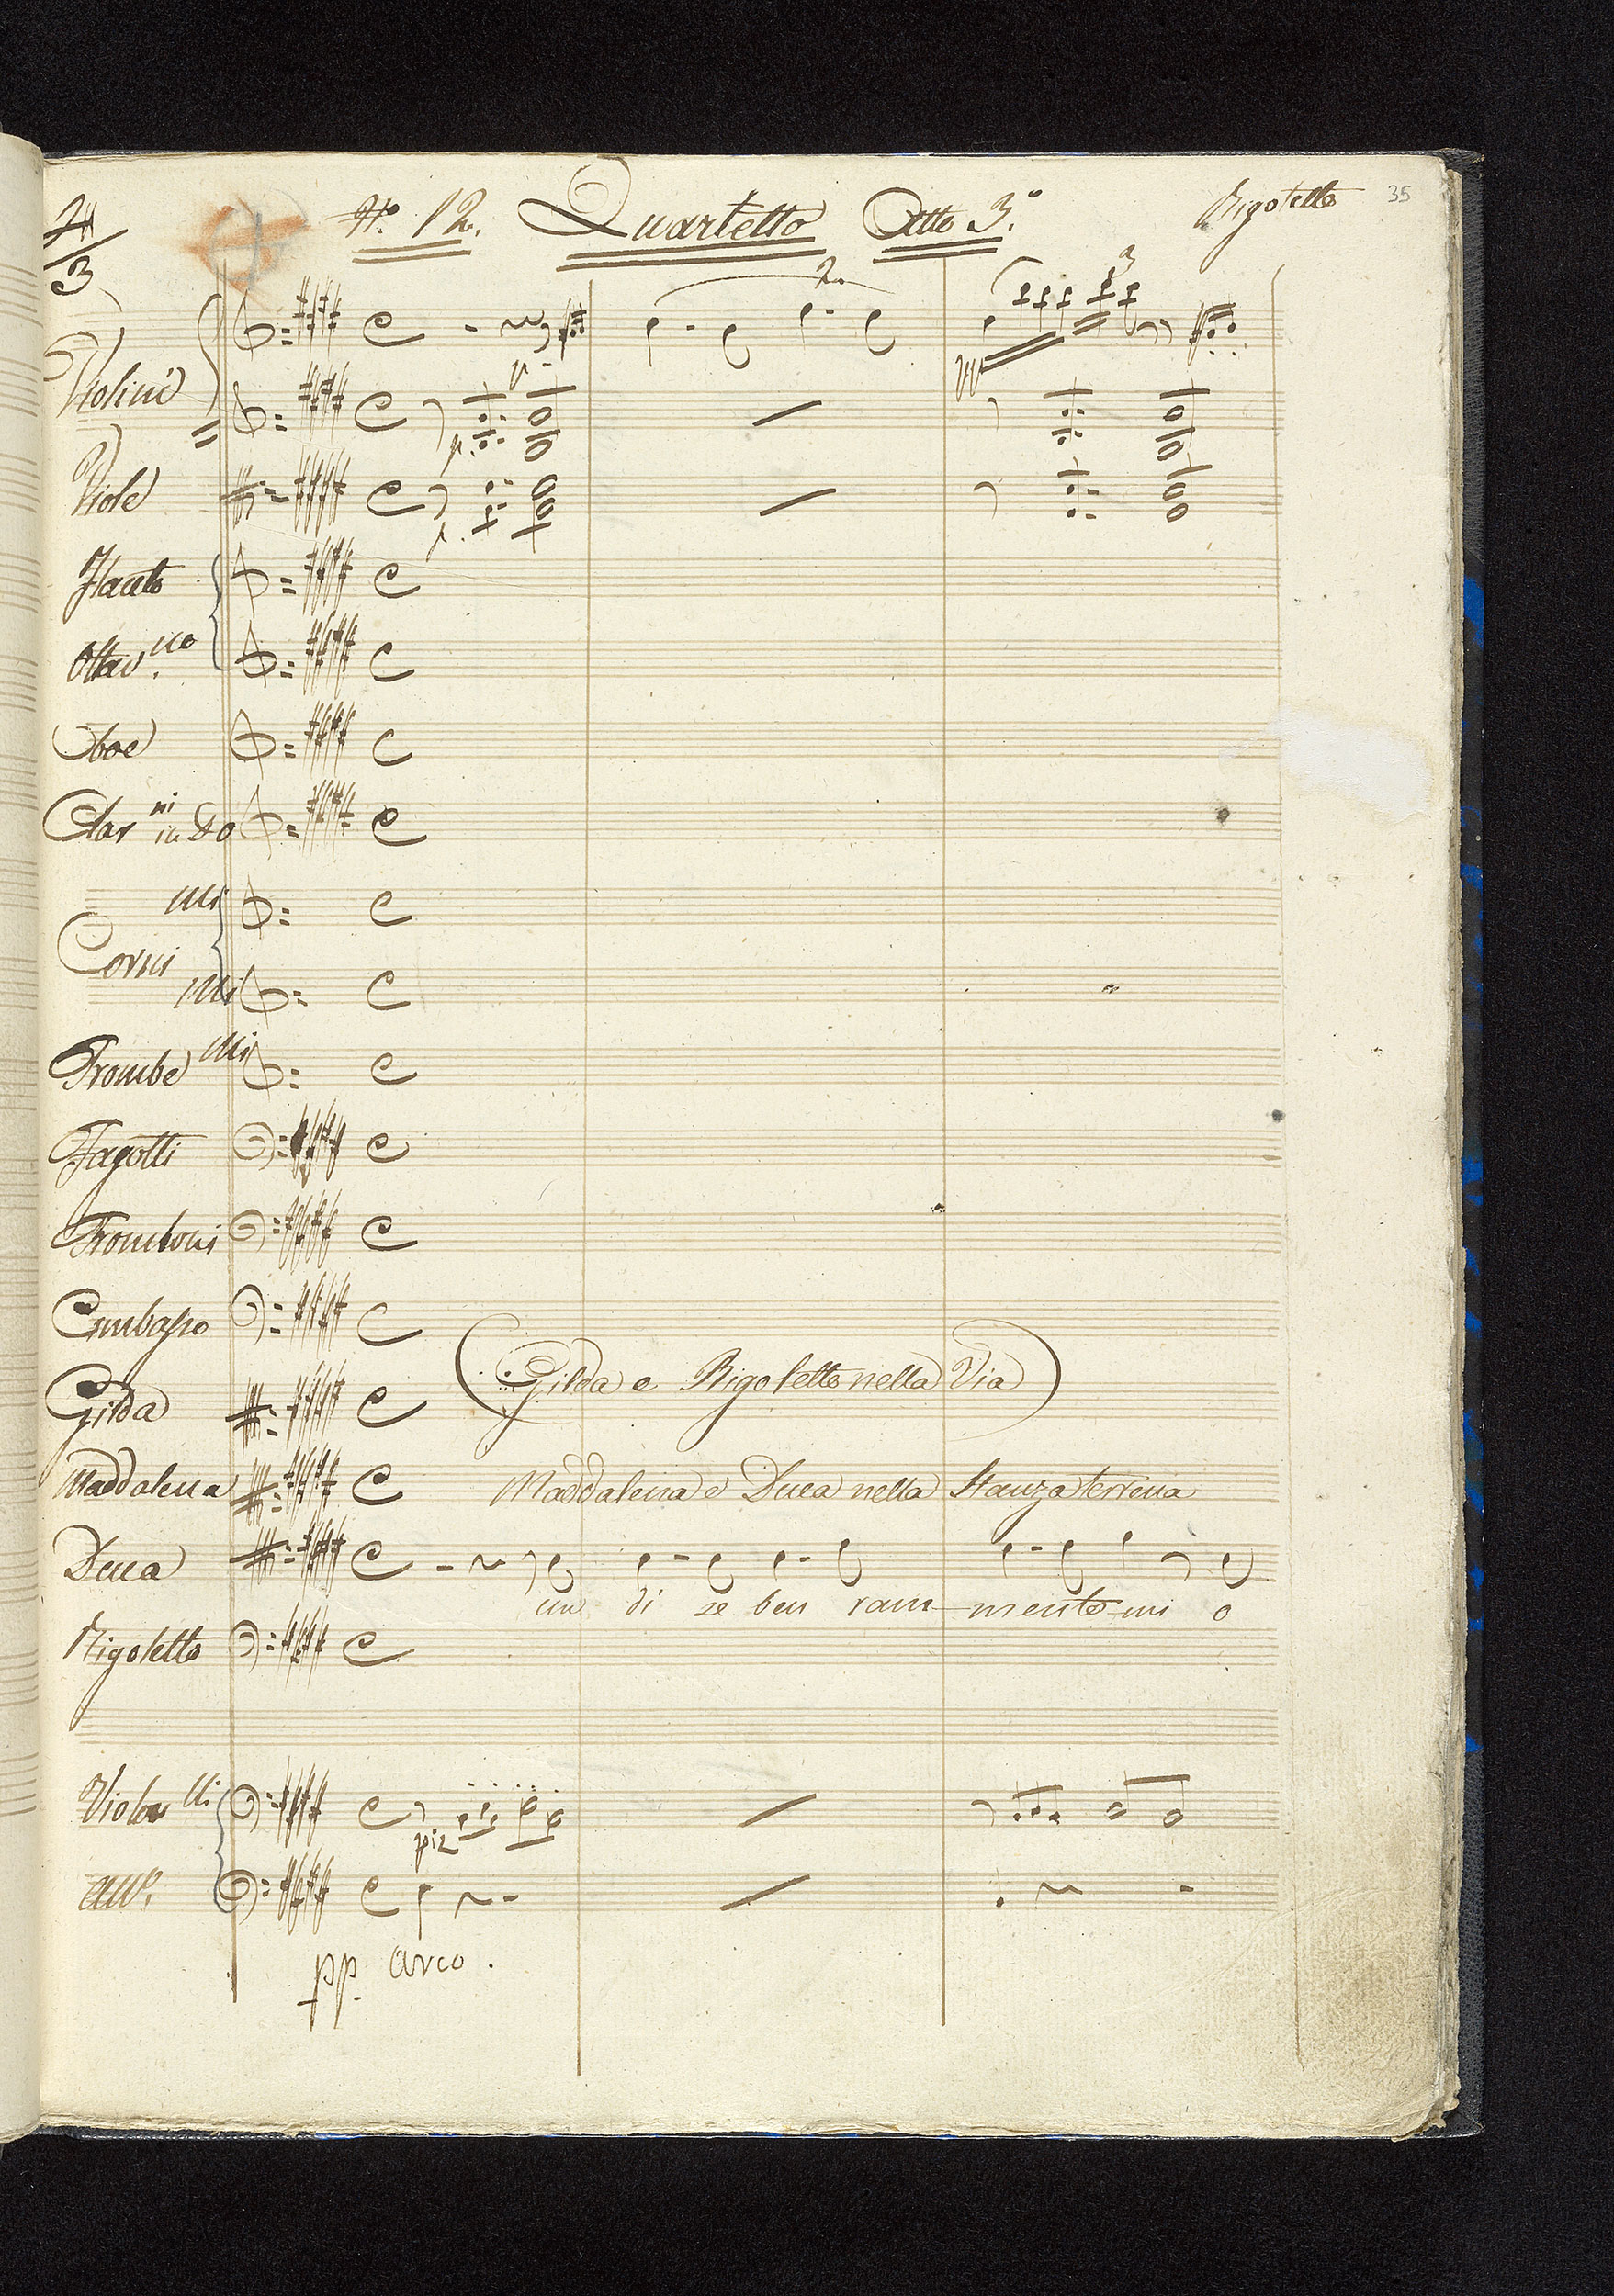 N.º 12. Quartetto Atto 3.º Rigoletto 35
3
Violini
Viole
Flauto
Ottav.no
Oboe
Clar ni in Do
Mi
Corni
Mi
Trombe Mi
Fagotti
Tromboni
Cimbasso
(Gilda e Rigoletto nella Via)
Gilda
Maddalena Maddalena e Duca nella Stanza terrena
Duca
un di se ben ram-mento-mi o
Rigoletto
Violon lli
piz
pp. arco.